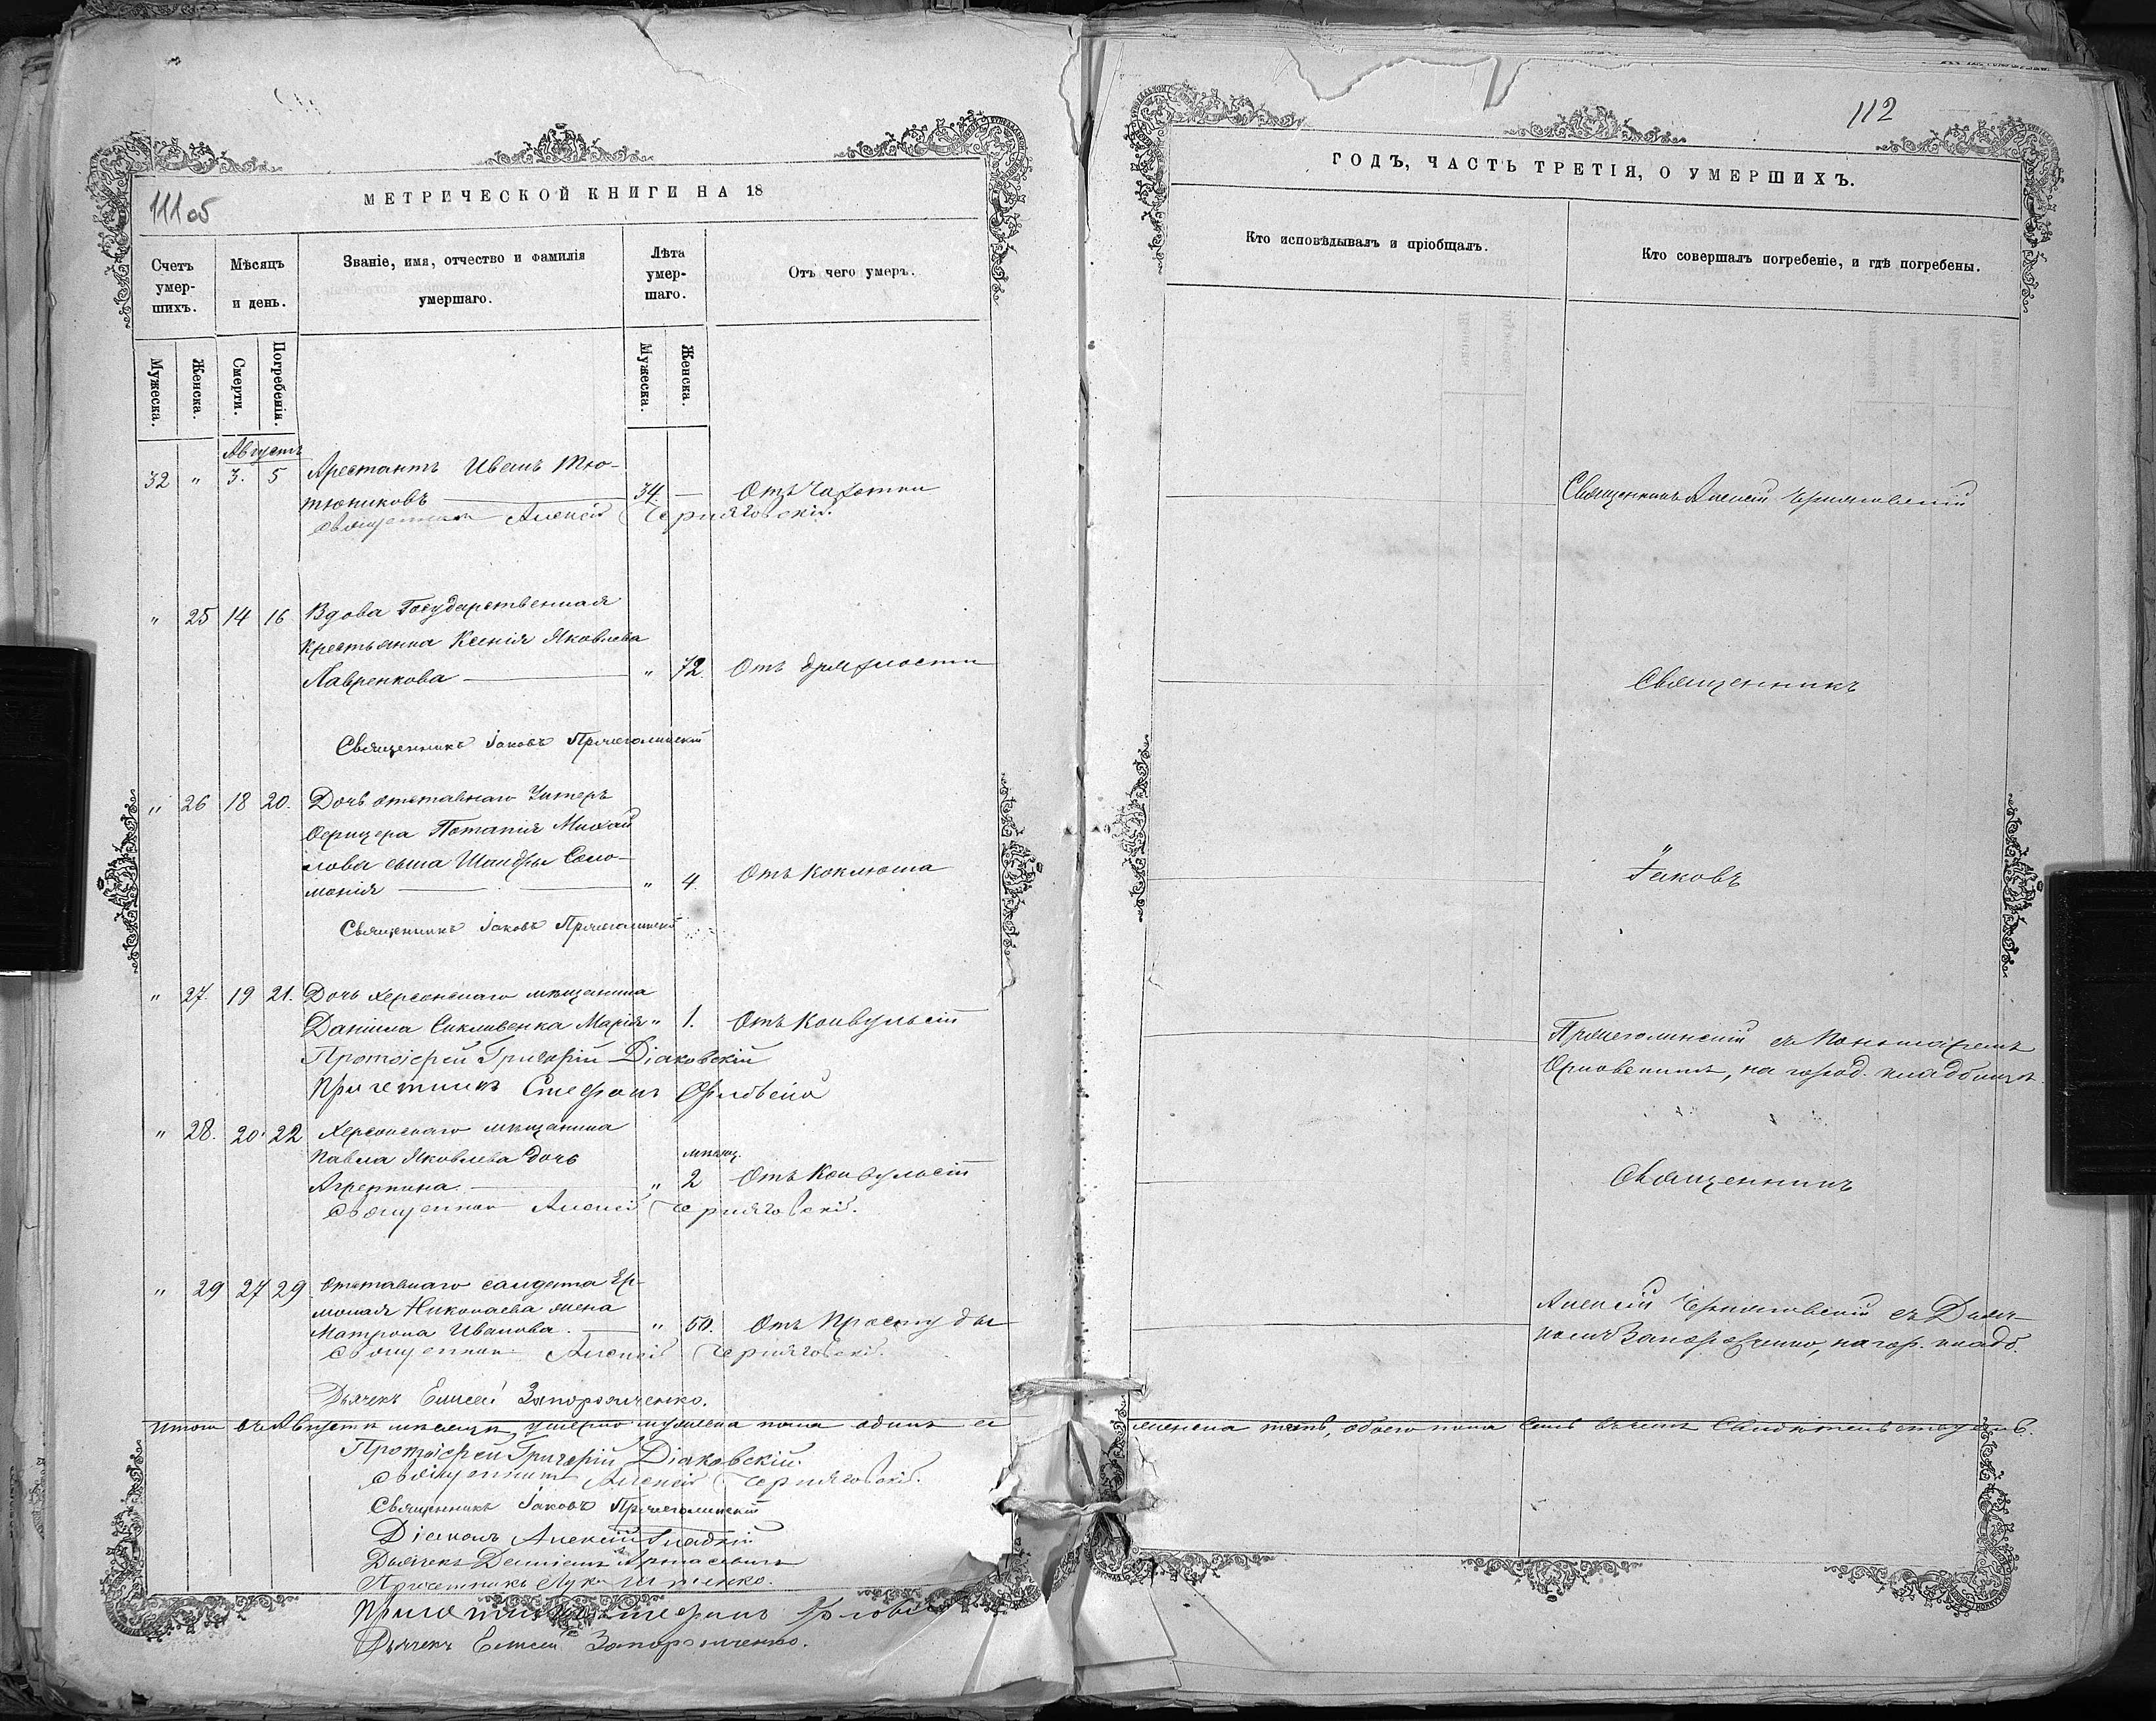 111 об
МЕТРИЧЕСКОЙ КНИГИ НА 18
Счетъ умер-шихъ.
Мѣсяцъ и день.
Званіе, имя, отчество и фамилія умершаго.
Лѣта умер-шаго.
Отъ чего умеръ.
Мужеска. Женска. Смерти. Погребенія. Мужеска. Женска.
Августъ
32 " 3. 5 Арестантъ Иванъ Тю-
тюниковъ 34. — Отъ Чахотки
Священникъ Алексій Черняговскій.
" 25 14 16 Вдова Государственная
крестьянка Ксенія Яковлева
Лавренкова " 72. Отъ дряхлости
Священникъ Іаковъ
" 26 18 20. Дочь отставнаго Унтеръ
Офицера Потапія Михай
лова сына Шандры Соло-
монія " 4. Отъ Коклюша
Священникъ Іаковъ
" 27. 19 21. Дочь херсонскаго мѣщанина
Даніила Марія " 1. Отъ Конвульсій
Протоіерей Григорій Діаковскій
Причетникъ Стефанъ
" 28. 20. 22 Херсонскаго мѣщанина
Павла Яковлева дочь
мѣсяц.
Агрепина. " 2 Отъ Конвульсій
Священникъ Алексій Черняговскій.
" 29 27 29. Отставнаго салдата Ер-
молая Николаева жена
Матрона Иванова. " 50. Отъ Простуды
Священникъ Алексій Черняговскій.
Дьячекъ Елисей Запорожченко.
Итого въ Августѣ мѣсяцѣ умерло мужеска пола одинъ
Протоіерей Григорій Діаковскій.
Священникъ Алексій Черняговскій.
Священникъ Іаковъ
Діаконъ Алексій Гладкій
Дьячекъ
Причетникъ Лука
Причетникъ Стефанъ
Дьячекъ Елисей Запорожченко.
112
ГОДЪ, ЧАСТЬ ТРЕТІЯ, О УМЕРШИХЪ.
Кто исповѣдывалъ и пріобщалъ.
Кто совершалъ погребеніе, и гдѣ погребены.
Священникъ Алексій Черняговскій
Священникъ
Іаковъ
съ Пономаремъ
на город. кладбищѣ.
Священникъ
Алексій Черняговскій съ Дьяч-
комъ Запорожченко, на гор. кладб.
женска пять, обоего пола